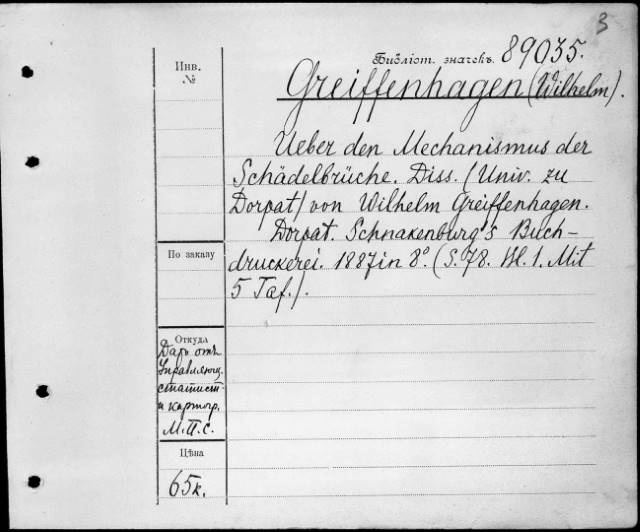 3
Инв.
№
Библіот. значекъ. 89035.
Greiffenhagen (Wilhelm).
Ueber den Mechanismus der
Schädelbrüche. Diss. (Univ. zu
Dorpat) von Wilhelm Greiffenhagen.
Dorpat. Schnakenburg's Buch-
druckerei. 1887 in 8°. (S. 78. Bl. 1. Mit
5 Taf.).
По заказу
Откуда
Даръ отъ
Управляющ.
статист.
и картогр.
М.П.С.
Цѣна
65к.